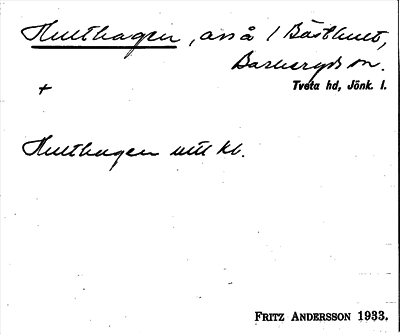 Hulthagen, avs å 1 Bästhult,
Barkeryds sn.
+ Tveta hd, Jönk. l.
Hulthagen utt kb.
FRITZ ANDERSSON 1933.